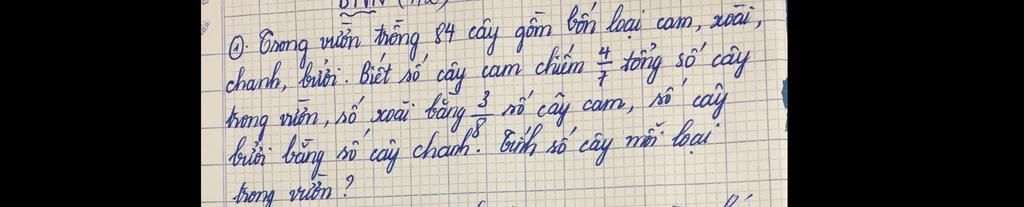 BTVN
①. Trong vườn trồng 84 cây gồm bốn loại cam, xoài,
chanh, bưởi. Biết số cây cam chiếm 4/7 tổng số cây
trong vườn, số xoài bằng 3/8 số cây cam, số cây
bưởi bằng số cây chanh. Tính số cây mỗi loại
trong vườn?